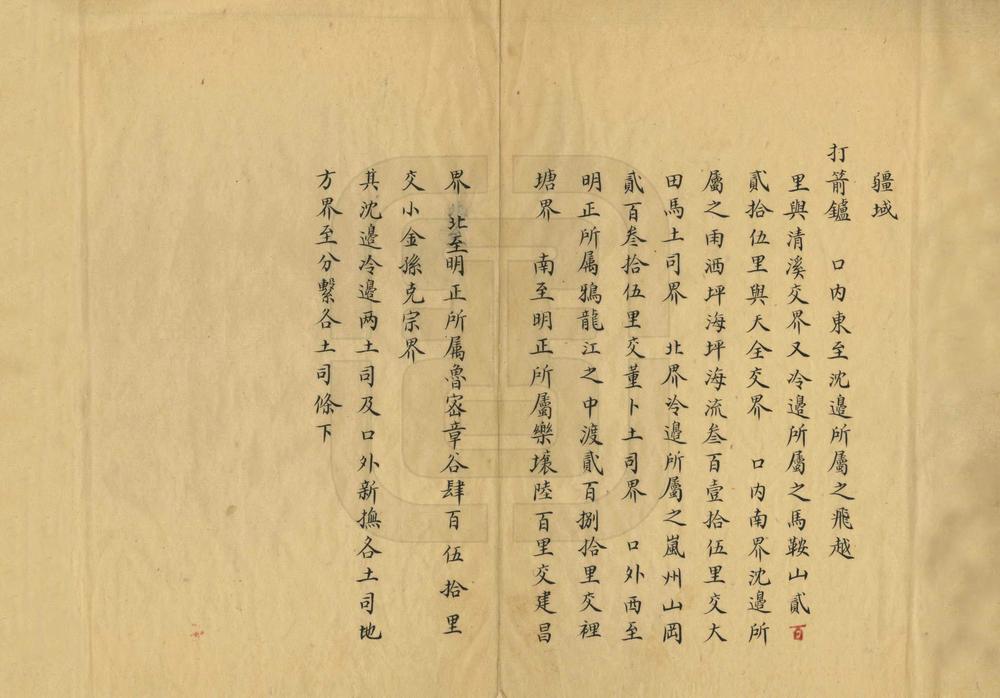 疆域
打箭鑪　口内東至沈邊所屬之飛越
里與清溪交界又冷邊所屬之馬鞍山貳百
貳拾伍里與天全交界　口内南界沈邊所
屬之雨洒坪海坪海流叁百壹拾伍里交大
田馬土司界　北界冷邊所屬之嵐州山岡
貳百叁拾伍里交董卜土司界　口外西至
明正所属鴉龍江之中渡貳百捌拾里交裡
塘界　南至明正所屬樂壤陸百里交建昌
界　北至明正所属魯密章谷肆百伍拾里
交小金孫克宗界
其沈邊冷邊两土司及口外新撫各土司地
方界至分繫各土司條下